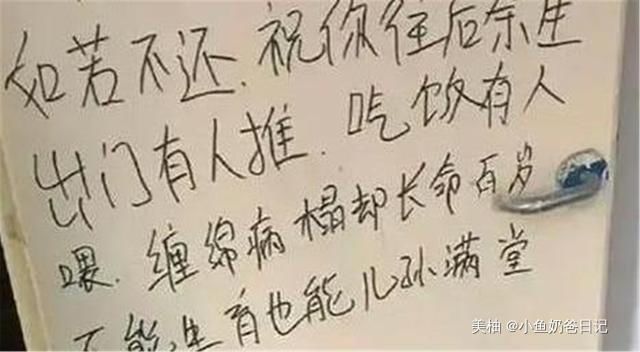 如若不还.祝你往后余生
出门有人推.吃饭有人
喂.缠绵病榻却长命百岁
不能生育也能儿孙满堂
美柚 @小鱼奶爸日记